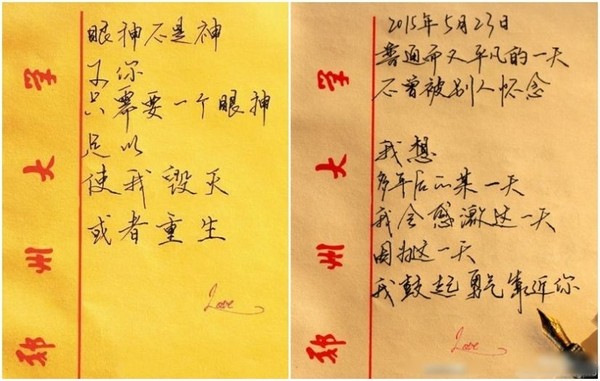 郑州大学
眼神不是神
你
只需要一个眼神
足以
使我毁灭
或者重生
Love
郑州大学
2015年5月23日
普通而又平凡的一天
不曾被别人怀念
我想
多年后的某一天
我会感激这一天
因为这一天
我鼓起勇气靠近你
Love